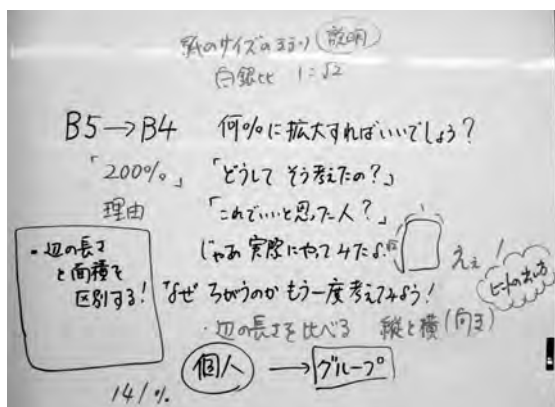 紙のサイズのきまり 説明
白銀比 1:√2
B5→B4 何%に拡大すればいいでしょう?
「200%。」「どうして そう考えたの?」
理由 「これでいいと思った人?」
じゃあ 実際にやってみたよ。
ええ!
ヒントの出し方
・辺の長さ
と面積を
区別する!
なぜ ちがうのか もう一度考えてみよう!
・辺の長さを比べる 縦と横(向き)
個人 → グループ
141%